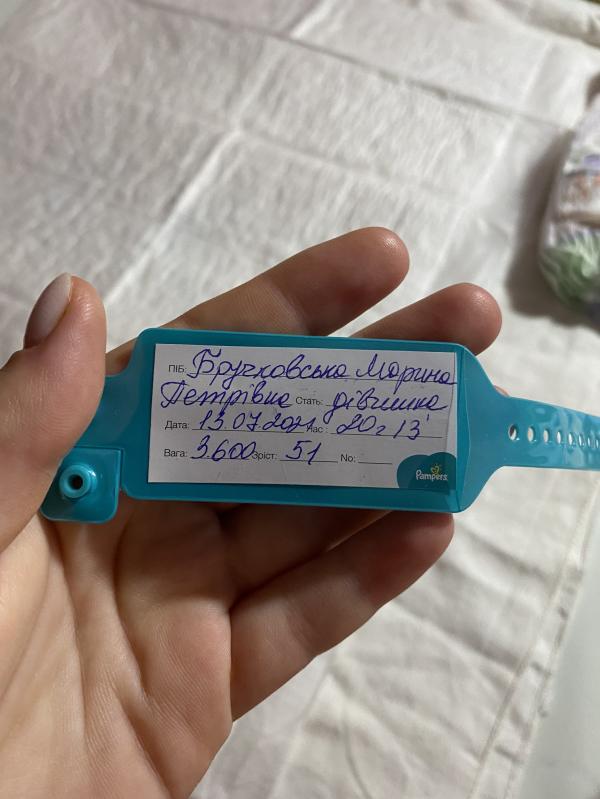 ПІБ: Бручковська Марина
Петрівна Стать: дівчинка
Дата: 13.07.2021 Час: 20г 13'
Вага: 3.600 Зріст: 51 No:
Pampers